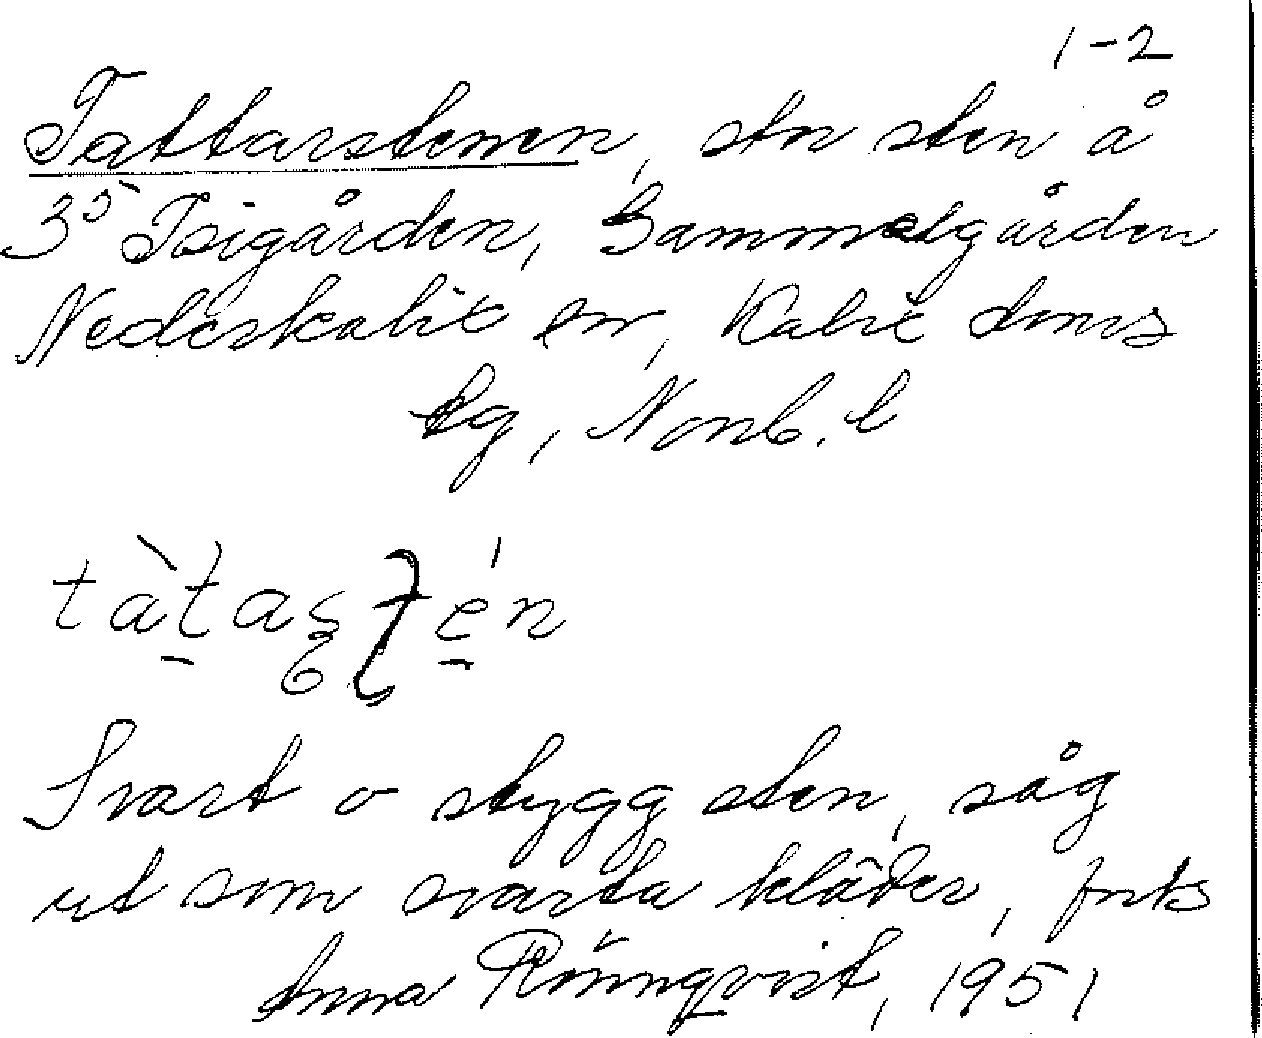 1-2
Tattarstenen, stn sten å
3⁵ Isigården, Gammelgården
Nederkalix sn, Kalix doms
lg, Norrb. l
tàt̠as e̠n
Svart o stygg sten, såg
ut som svarta kläder, forts
Anna Rönnqvist, 1951